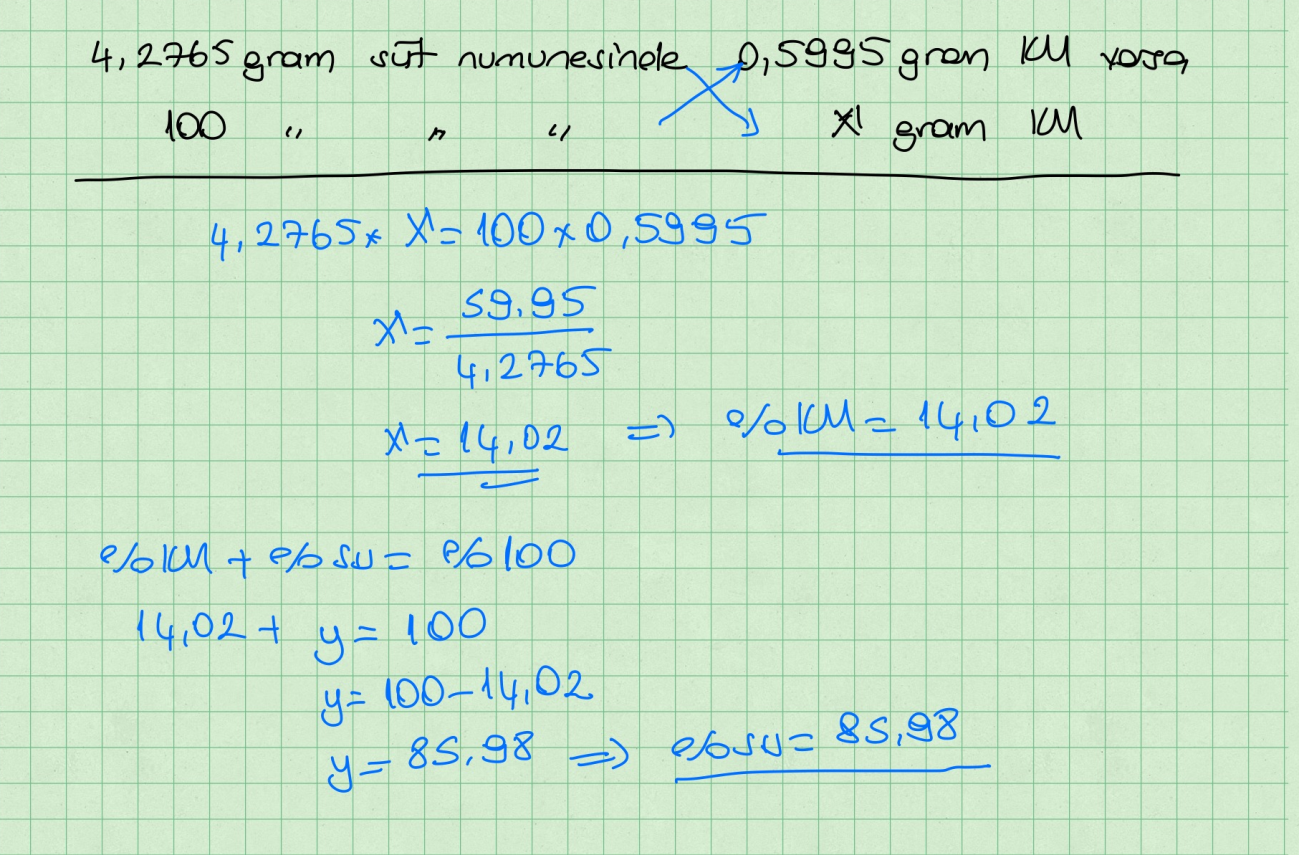 4,2765 gram süt numunesinde 0,5995 gram KM varsa
100 " " " X gram KM
4,2765 * X = 100 x 0,5995
X = 59,95 / 4,2765
X = 14,02 => %KM = 14,02
%KM + %su = %100
14,02 + y = 100
y = 100 - 14,02
y = 85,98 => %su = 85,98